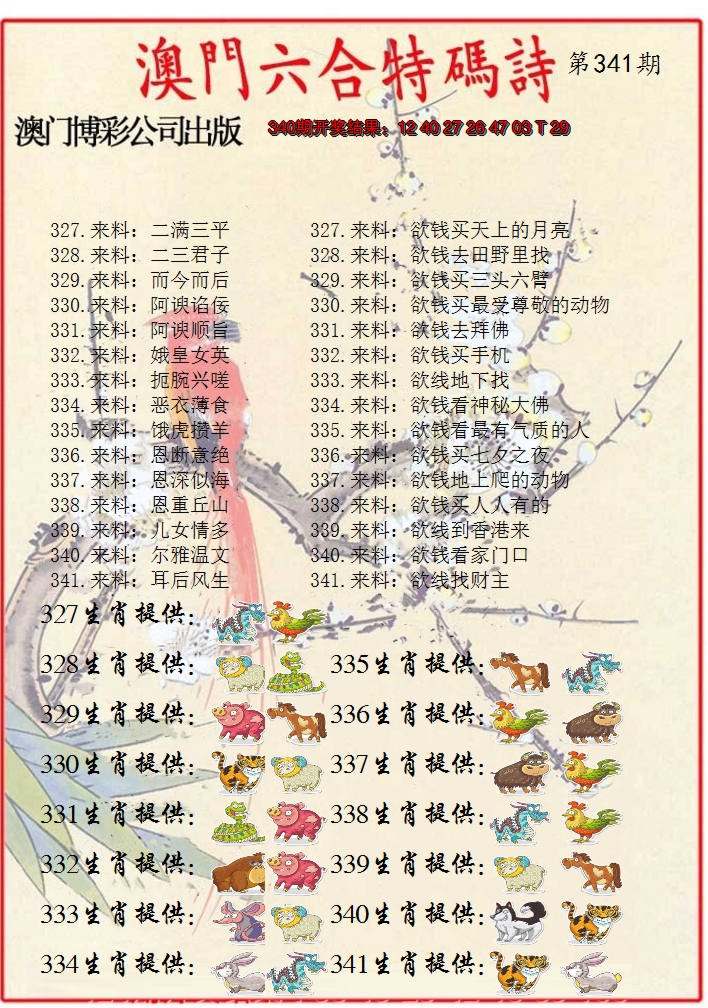 澳門六合特碼詩 第341期
澳门博彩公司出版 340期开奖结果：12 40 27 26 47 03 T 29
327.来料：二满三平 327.来料：欲钱买天上的月亮
328.来料：二三君子 328.来料：欲钱去田野里找
329.来料：而今而后 329.来料：欲钱买三头六臂
330.来料：阿谀谄佞 330.来料：欲钱买最受尊敬的动物
331.来料：阿谀顺旨 331.来料：欲钱去拜佛
332.来料：娥皇女英 332.来料：欲钱买手机
333.来料：扼腕兴嗟 333.来料：欲线地下找
334.来料：恶衣薄食 334.来料：欲钱看神秘大佛
335.来料：饿虎攒羊 335.来料：欲钱看最有气质的人
336.来料：恩断意绝 336.来料：欲钱买七夕之夜
337.来料：恩深似海 337.来料：欲钱地上爬的动物
338.来料：恩重丘山 338.来料：欲钱买人人有的
339.来料：儿女情多 339.来料：欲线到香港来
340.来料：尔雅温文 340.来料：欲钱看家门口
341.来料：耳后风生 341.来料：欲线找财主
327生肖提供：
328生肖提供： 335生肖提供：
329生肖提供： 336生肖提供：
330生肖提供： 337生肖提供：
331生肖提供： 338生肖提供：
332生肖提供： 339生肖提供：
333生肖提供： 340生肖提供：
334生肖提供： 341生肖提供：